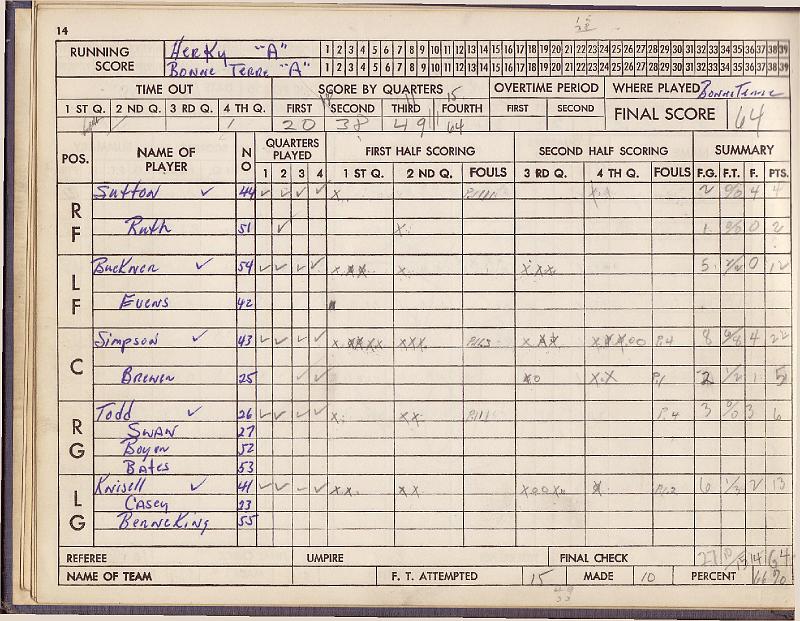 14
RUNNING SCORE HERKY "A" 1 2 3 4 5 6 7 8 9 10 11 12 13 14 15 16 17 18 19 20 21 22 23 24 25 26 27 28 29 30 31 32 33 34 35 36 37 38 39
BONNE TERRE "A" 1 2 3 4 5 6 7 8 9 10 11 12 13 14 15 16 17 18 19 20 21 22 23 24 25 26 27 28 29 30 31 32 33 34 35 36 37 38 39
TIME OUT SCORE BY QUARTERS OVERTIME PERIOD WHERE PLAYED Bonne Terre
1 ST Q. 2 ND Q. 3 RD Q. 4 TH Q. FIRST SECOND THIRD FOURTH FIRST SECOND FINAL SCORE 64
20 38 49 64
POS. NAME OF PLAYER NO QUARTERS PLAYED FIRST HALF SCORING SECOND HALF SCORING SUMMARY
1 2 3 4 1 ST Q. 2 ND Q. FOULS 3 RD Q. 4 TH Q. FOULS F.G. F.T. F. PTS.
RF Sutton 44 4 4
Ruth 51 2
LF Buckner 54 5 0 12
Evens 42
C Simpson 43 8 6/8 4 22
Brewen 25 2 1/2 1 5
RG Todd 26 3 0/0 3 6
SWAN 27
Boyer 52
Bates 53
LG Knisell 41 6 1/3 2 13
Casey 23
BerneKing 55
REFEREE UMPIRE FINAL CHECK 27 10/15 14 64
NAME OF TEAM F. T. ATTEMPTED 15 MADE 10 PERCENT 66%